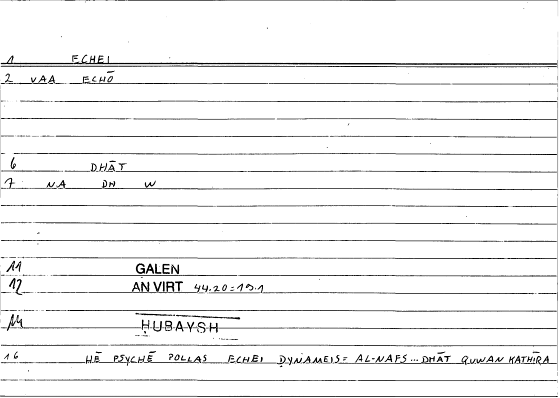 1 ECHEI
2 VAA ECHŌ
6 DHĀT
7 NA DH W
11 GALEN
12 AN VIRT 44.20=19.1
14 HUBAYSH
16 HĒ PSYCHĒ POLLAS ECHEI DYNAMEIS= AL-NAFS...DHĀT QUWAN KATHĪRA